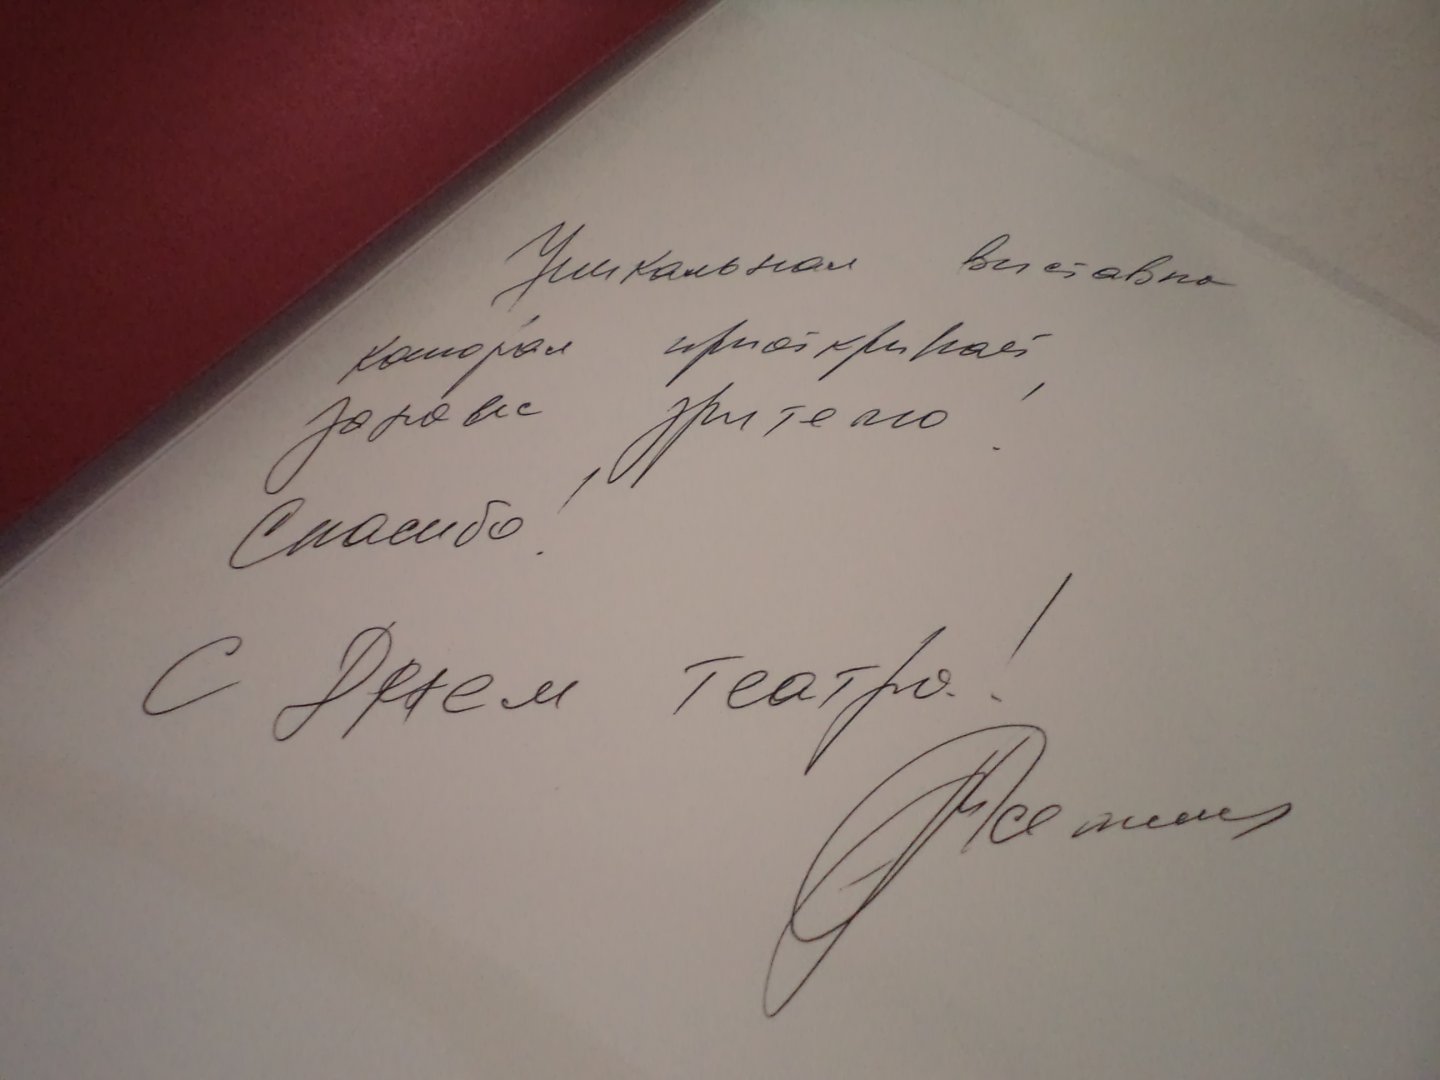 Уникальная выставка
которая приоткрывает
занавес зрителю!
Спасибо!
С Днем театра!